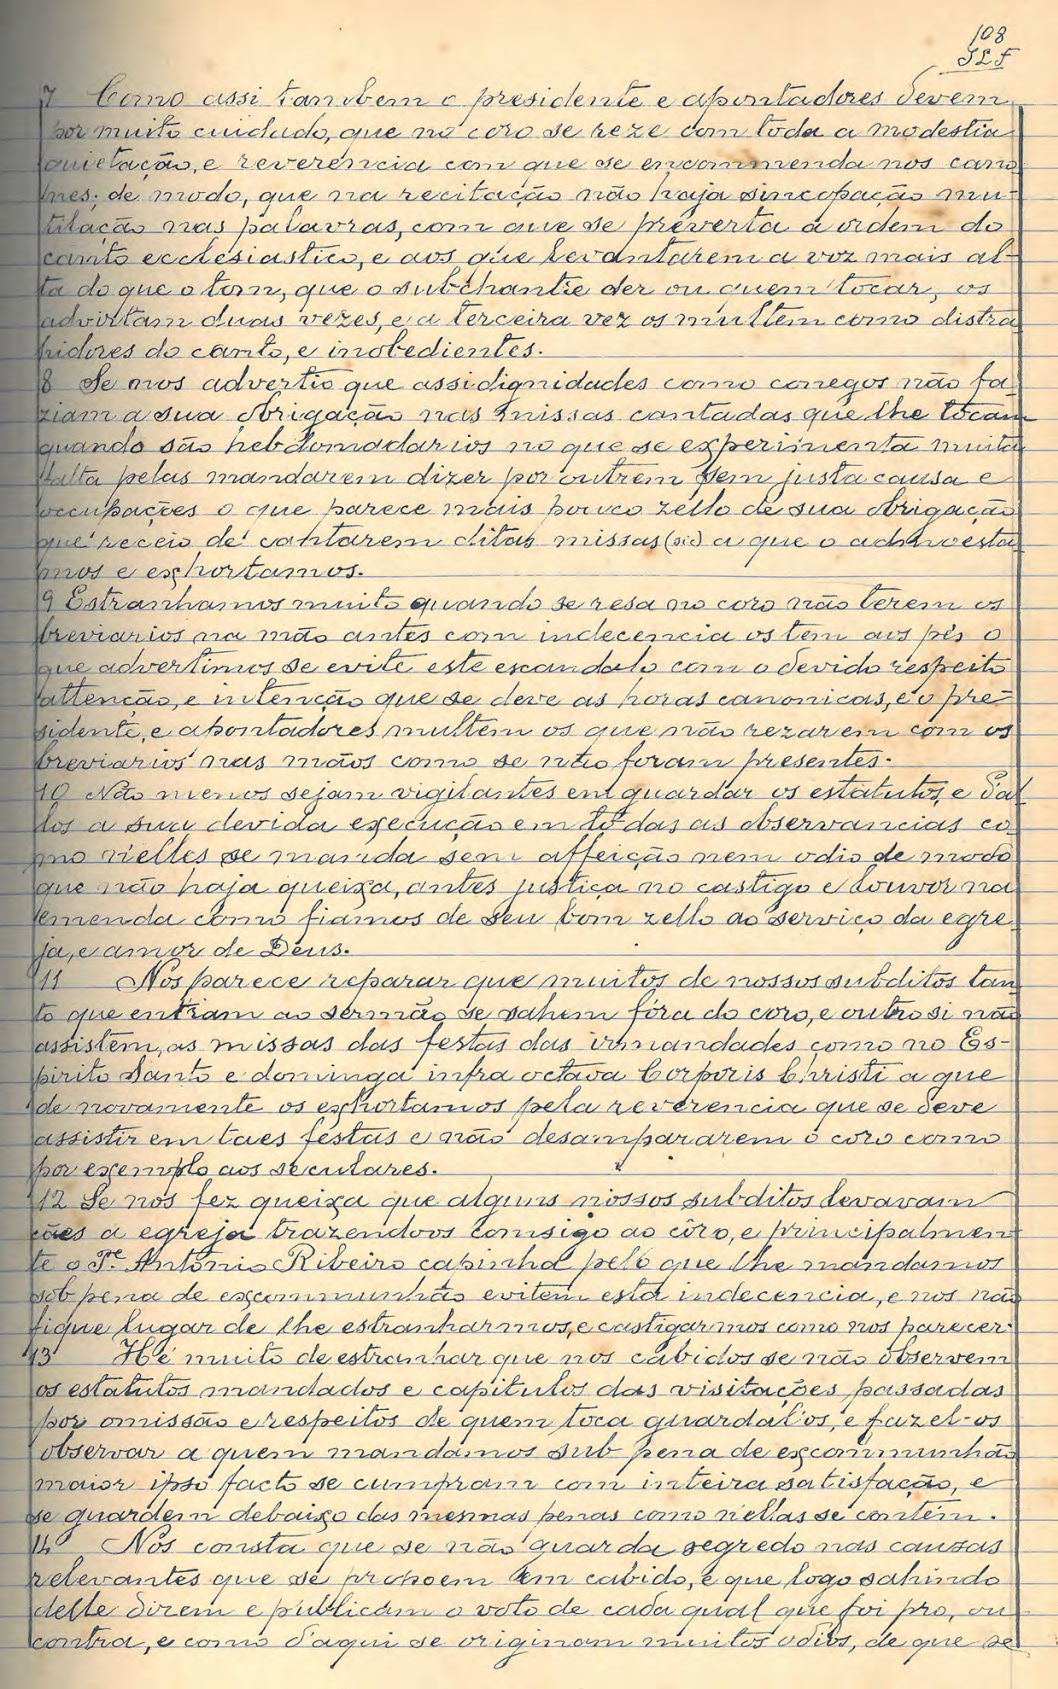 108
JLF
7 Como assi tambem o presidente e apontadores devem
por muito cuidado, que no coro se reze com toda a modestia
quietação, e reverencia com que se encommenda nos cano
nes; de modo, que na recitação não haja sincopação mu-
tilação nas palavras, com que se preverta a ordem do
canto ecclesiastico, e aos que levantarem a voz mais al-
ta do que o tom, que o subchantre der ou quem tocar, os
advirtam duas vezes, e a terceira vez os multem como distra
hidores do canto, e inobedientes.
8 Se nos advertio que assi dignidades como conegos não fa
ziam a sua obrigação nas missas cantadas que lhe tocam
quando são hebdomadarios no que se experimenta muita
falta pelas mandarem dizer por outrem sem justa causa e
occupações o que parece mais pouco zello de sua obrigação
que receio de cantarem ditas missas (sic) a que o admoesta
mos e exhortamos.
9 Estranhamos muito quando se resa no coro não terem os
breviarios na mão antes com indecencia os tem aos pés o
que advertimos se evite este escandalo com o devido respeito
attenção, e intenção que se deve as horas canonicas, e o pre-
sidente, e apontadores multem os que não rezarem com os
breviarios nas mãos como se não foram presentes.
10 Não menos sejam vigilantes em guardar os estatutos, e dal
los a sua devida execução em todas as observancias co
mo n'elles se manda sem affeição nem odio de modo
que não haja queixa, antes justiça no castigo e louvor na
emenda como fiamos de seu bom zello ao serviço da egre
ja, e amor de Deus.
11 Nos parece reparar que muitos de nossos subditos tan
to que entram ao sermão se sahem fóra do coro, e outro si não
assistem, as missas das festas das irmandades como no Es-
pirito Santo e dominga infra octava Corporis Christi a que
de novamente os exhortamos pela reverencia que se deve
assistir em taes festas e não desampararem o coro como
por exemplo aos seculares.
12 Se nos fez queixa que alguns nossos subditos levavam
cães a egreja trazendoos comsigo ao côro, e principalmen
te o Pe. Antonio Ribeiro capinha pelo que lhe mandamos
sob pena de excommunhão evitem esta indecencia, e nos não
fique lugar de lhe estranharmos, e castigarmos como nos parecer.
13 Hé muito de estranhar que nos cabidos se não observem
os estatutos mandados e capitulos das visitações passadas
por omissão e respeitos de quem toca guardal'os, e fazel-os
observar a quem mandamos sub pena de excommunhão
maior ipso facto se cumpram com inteira satisfação, e
se guardem debaixo das mesmas penas como n'ellas se contem.
14 Nos consta que se não guarda segredo nas cauzas
relevantes que se propoem em cabido, e que logo sahindo
delle dizem e publicam o voto de cada qual que foi pro, ou
contra, e como d'aqui se originam muitos odios, de que se